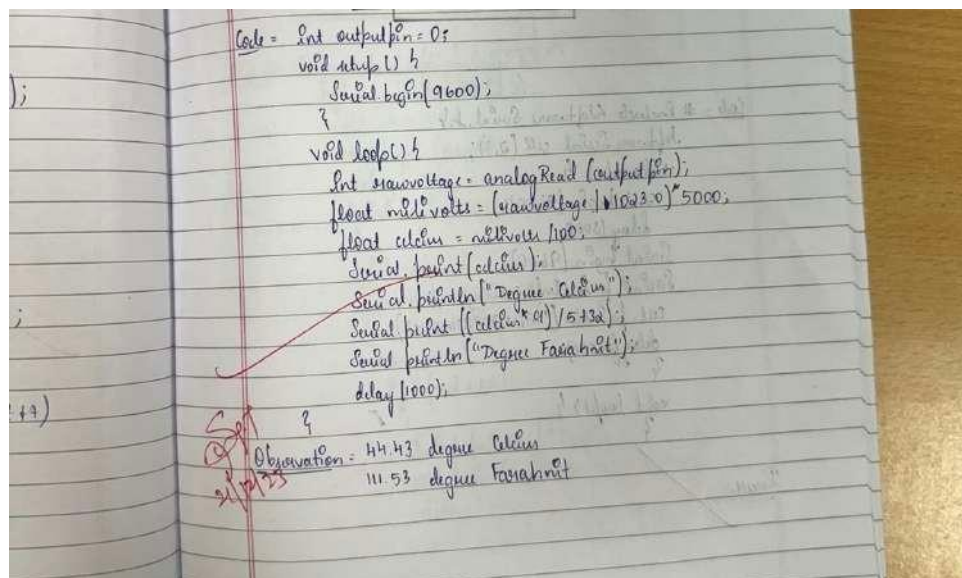 );
;
+7)
Code = int outputpin = 0;
void setup() {
Serial.begin(9600);
}
void loop() {
int rawvoltage = analogRead (outputpin);
float milivolts = (rawvoltage / 1023.0) * 5000;
float celcius = milivolts /100;
Serial.print(celcius);
Serial.println("Degree Celcius");
Serial.print ((celcius * 9) / 5 + 32);
Serial.println("Degree Farahnit");
delay (1000);
}
Observation = 44.43 degree Celcius
111.53 degree Farahnit